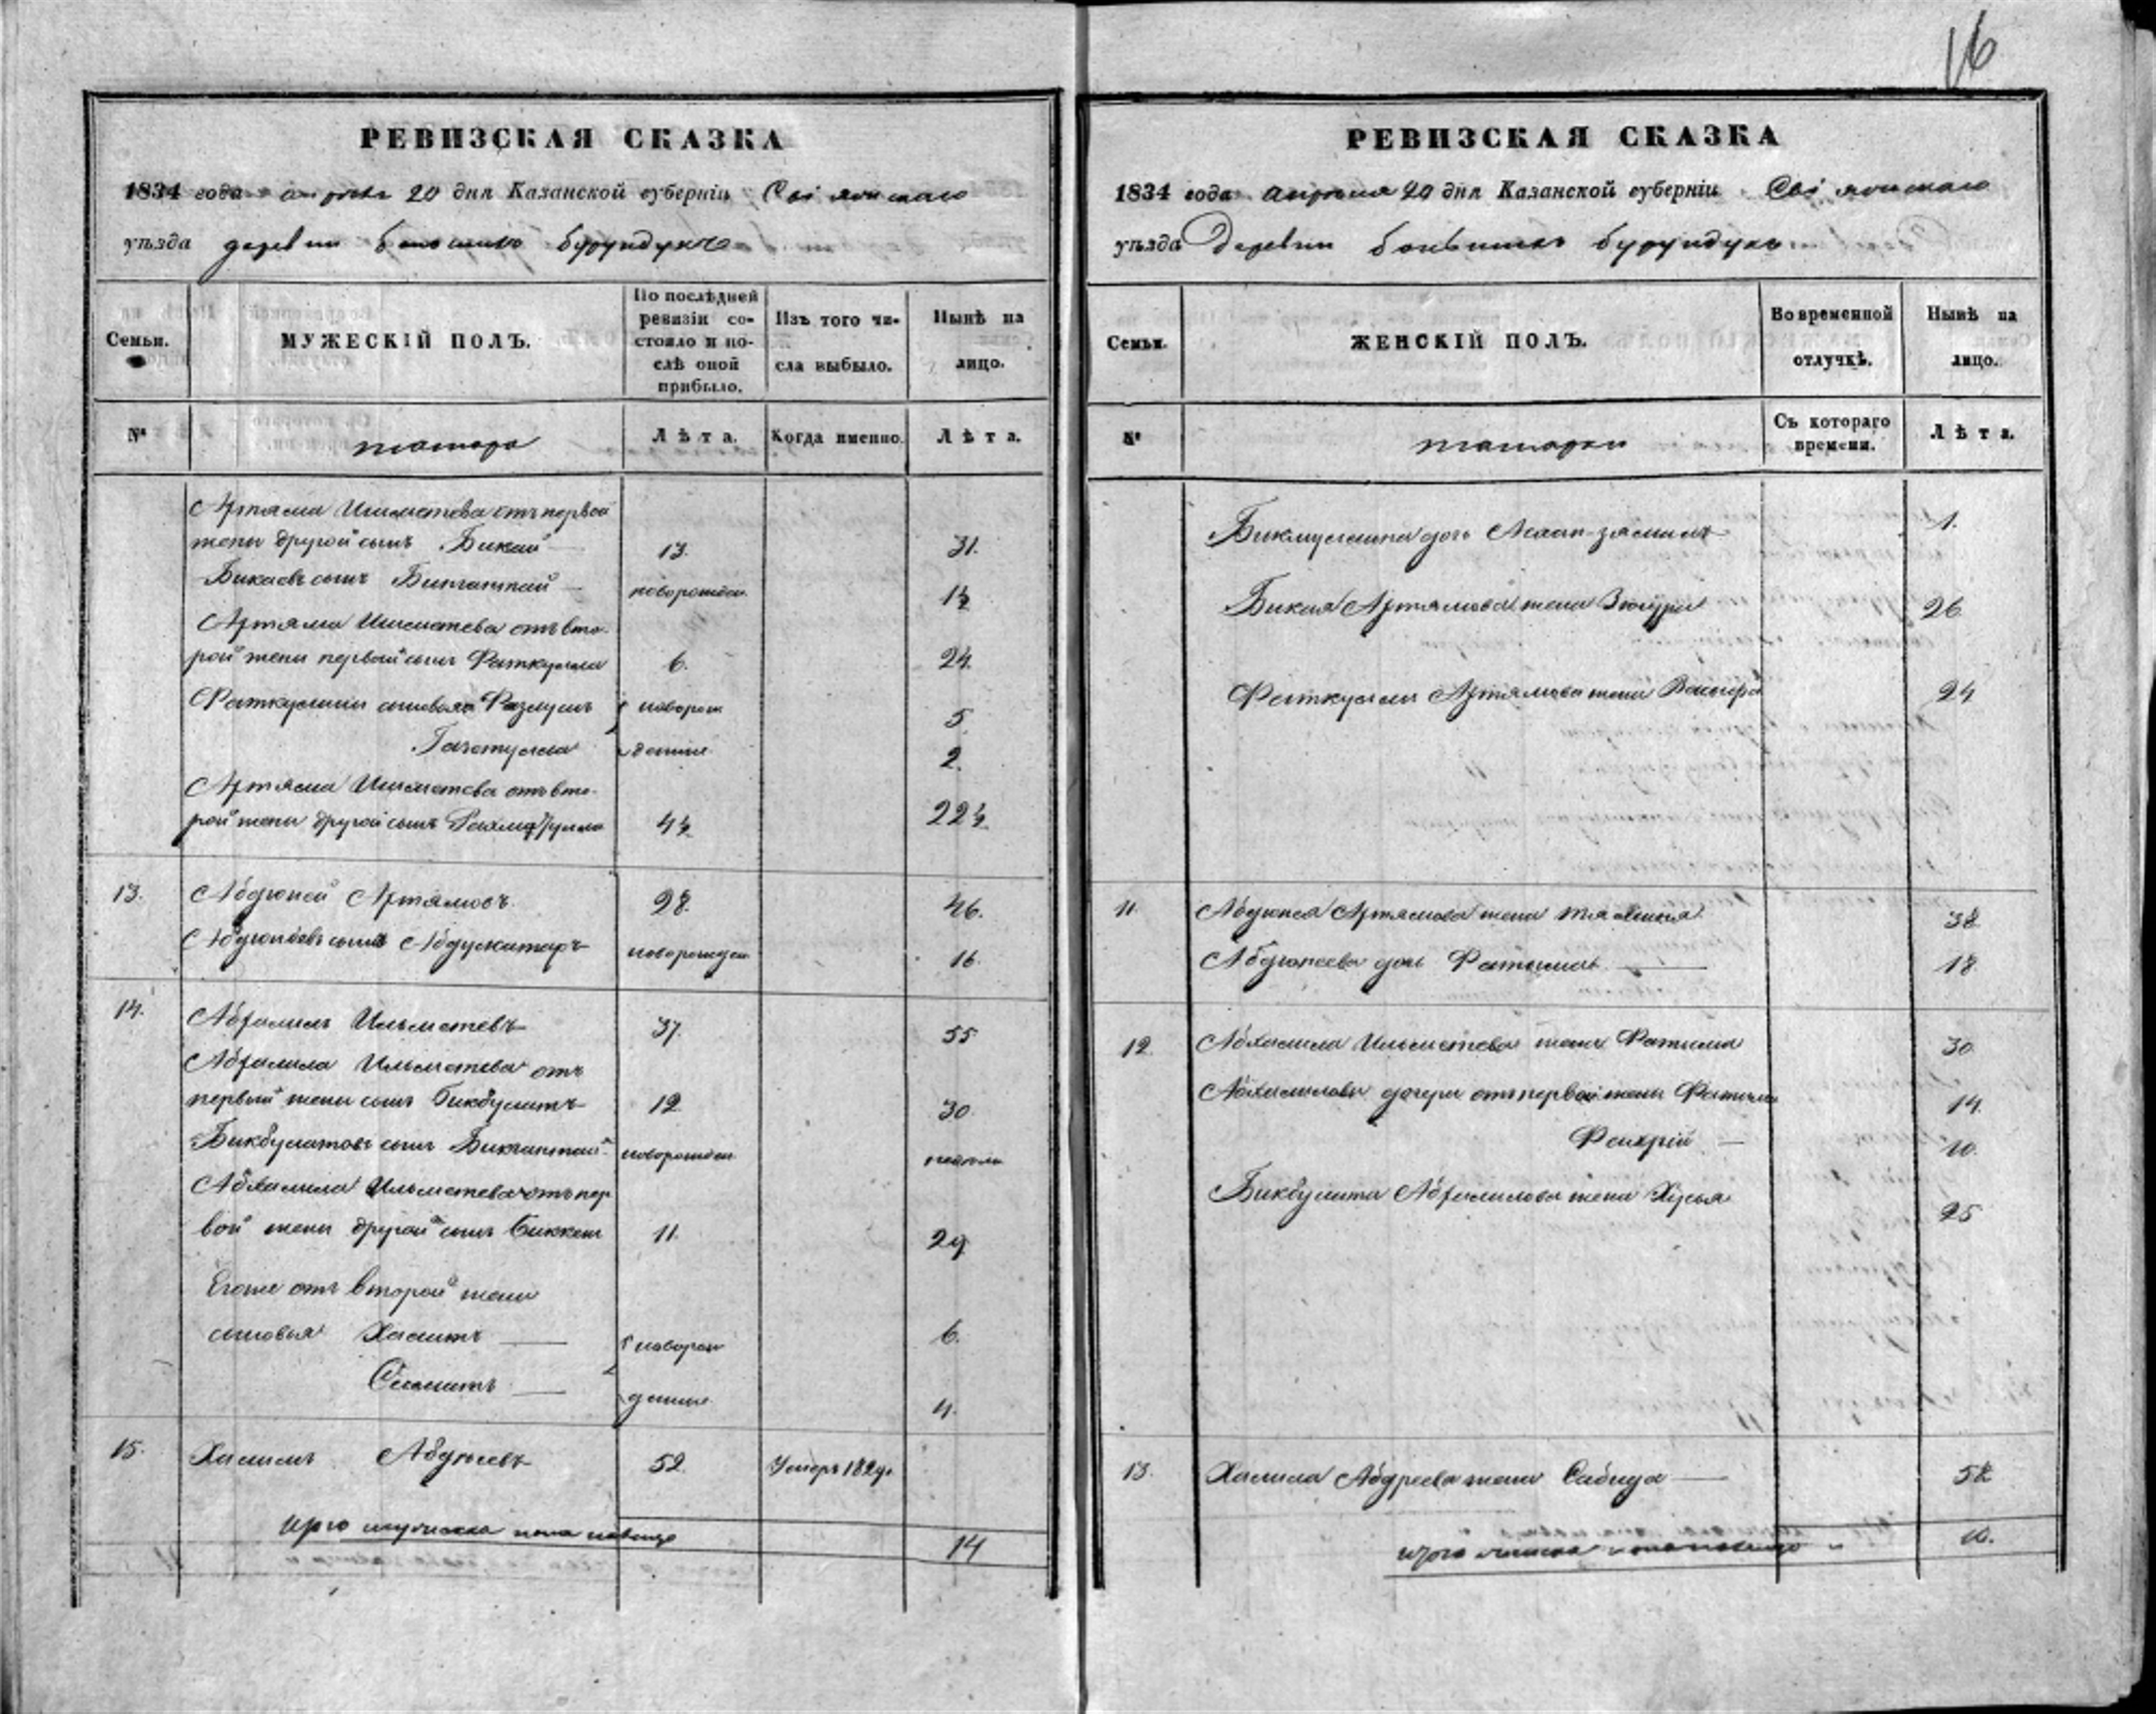 16
РЕВИЗСКАЯ СКАЗКА
1834 года апреля 20 дня Казанской губерніи Свіяжскаго
уѣзда деревни Большихъ Бурундукъ
Семьи.
МУЖЕСКІЙ ПОЛЪ.
По послѣдней ревизіи состояло и послѣ оной прибыло.
Изъ того числа выбыло.
Нынѣ на лицо.
№
татара
Лѣта.
Когда именно.
Лѣта.
Артяма Ишметева отъ первой
жены другой сынъ Бикай 13. 31.
Бикаевъ сынъ Бигантай новорожден 1½
Артяма Ишметева отъ вто-
рой жены первый сынъ Фаткулла 6. 24.
Фаткуллины сыновья Фазлулъ новорож 5
денные 2.
Артяма Ишметева отъ вто-
рой жены другой сынъ 4½ 22½
13. Абдюней Артямовъ 28. 46.
Абдюнеевъ сынъ новорожден 16.
14. Абхалилъ Ильметевъ 37. 55
Абхалила Ильметева отъ
первой жены сынъ Бикбулатъ 12 30
Бикбулатовъ сынъ Бикчантай новорожден недели
Абхалила Ильметева отъ пер
вой жены другой сынъ 11. 29
Егоже отъ второй жены
сыновья Халитъ новорож 6.
Самитъ денные 4.
15. Халилъ 52 Умеръ 1829го
Итого мужеска пола налицо 14
РЕВИЗСКАЯ СКАЗКА
1834 года апреля 20 дня Казанской губерніи Свіяжскаго
уѣзда Деревни Большихъ Бурундукъ
Семьи.
ЖЕНСКІЙ ПОЛЪ.
Во временной отлучкѣ.
Нынѣ на лицо.
№
татарки
Съ котораго времени.
Лѣта.
дочь 1.
Бикая Артямова жена Зюгра 26
Фаткуллы Артямова жена 24
11. Абдюнея Артямова жена 38
Абдюнеева дочь Фатыма 18
12 Абхалила Ильметева жена Фатима 30
Абхалиловы дочери отъ первой жены 14.
10.
Бикбулата Абхалилова жена 25
13. Халила жена Сабида 58
Итого женска пола налицо 10.